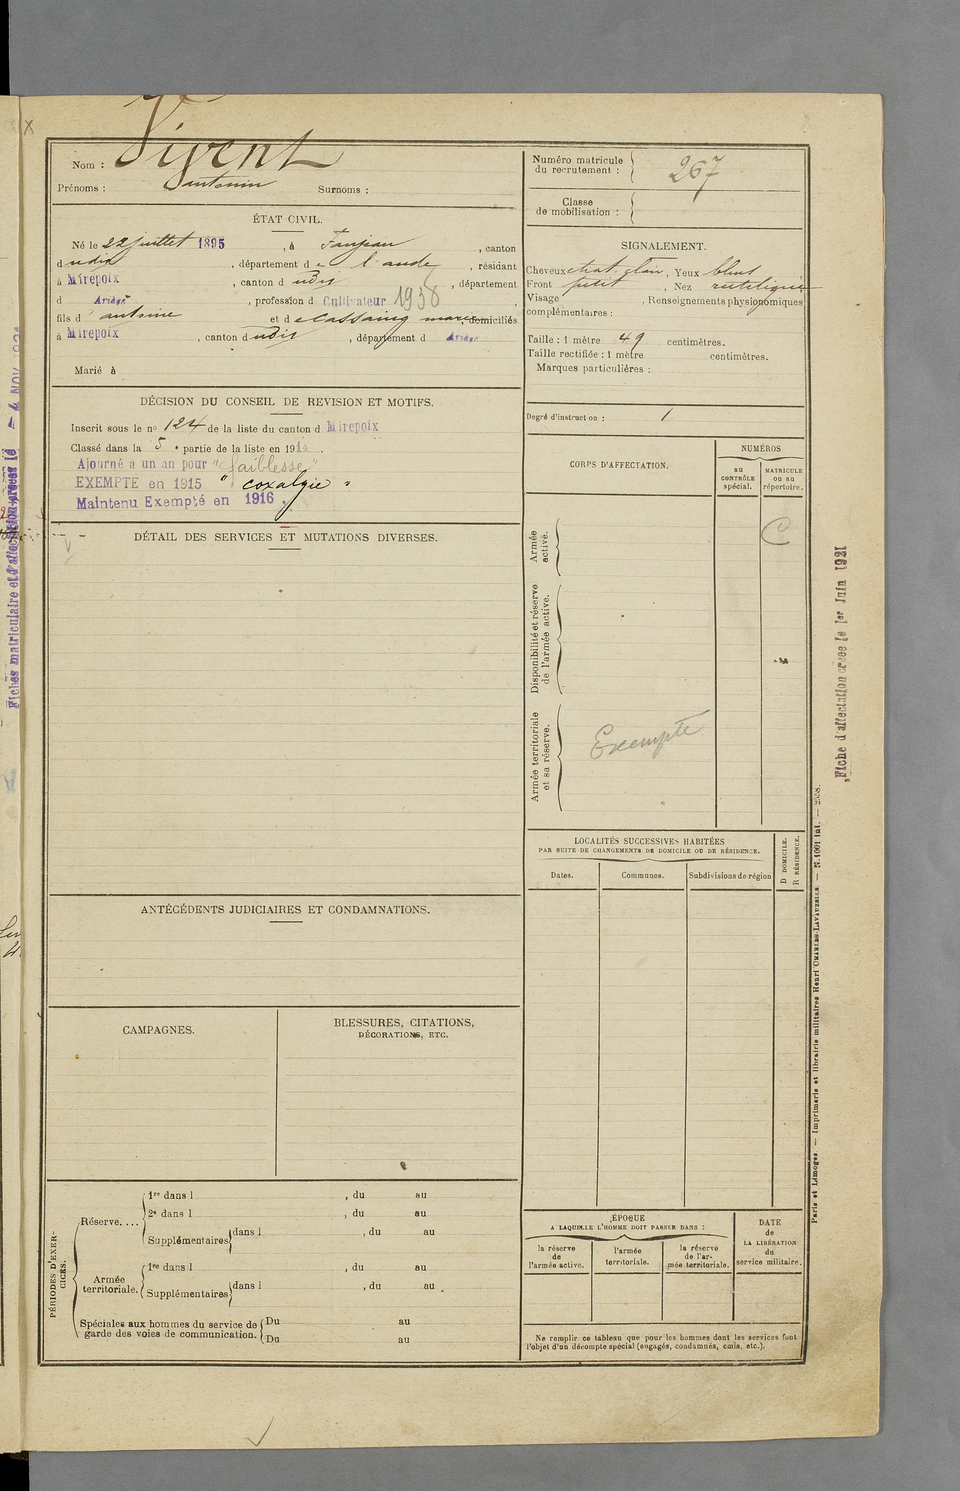 Nom : Vivent
Prénoms : Antonin Surnoms :
Numéro matricule du recrutement : 267
Classe de mobilisation :
ÉTAT CIVIL.
Né le 22 juillet 1895, à Fanjeau, canton
dudit, département de l'aude, résidant
à Mirepoix, canton dudit, département
d Ariège, profession d Cultivateur 1938,
fils d'antoine et de Cassaing marie, domiciliés
à Mirepoix, canton dudit, département d Ariège
Marié à
SIGNALEMENT.
Cheveux chat. clair, Yeux bleus,
Front petit, Nez rectiligne
Visage , Renseignements physionomiques
complémentaires :
Taille : 1 mètre 49 centimètres.
Taille rectifiée : 1 mètre centimètres.
Marques particulières :
Degré d'instruction : 1
DÉCISION DU CONSEIL DE REVISION ET MOTIFS.
Inscrit sous le n° 124 de la liste du canton d Mirepoix
Classé dans la 5e partie de la liste en 1914.
Ajourné a un an pour "faiblesse"
EXEMPTE en 1915 "coxalgie"
Maintenu Exempté en 1916.
DÉTAIL DES SERVICES ET MUTATIONS DIVERSES.
CORPS D'AFFECTATION.
NUMÉROS
au CONTRÔLE spécial.
MATRICULE ou au répertoire.
Armée active.
C
Disponibilité et réserve de l'armée active.
Armée territoriale et sa réserve.
Exempté
LOCALITÉS SUCCESSIVES HABITÉES
PAR SUITE DE CHANGEMENTS DE DOMICILE OU DE RÉSIDENCE.
Dates. Communes. Subdivisions de région
D DOMICILE.
R RÉSIDENCE.
ANTÉCÉDENTS JUDICIAIRES ET CONDAMNATIONS.
CAMPAGNES.
BLESSURES, CITATIONS,
DÉCORATIONS, ETC.
PÉRIODES D'EXERCICES.
Réserve....
1re dans l , du au
2e dans l , du au
Supplémentaires dans l , du au
Armée territoriale.
1re dans l , du au
Supplémentaires dans l , du au
Spéciales aux hommes du service de
garde des voies de communication.
Du au
Du au
ÉPOQUE
A LAQUELLE L'HOMME DOIT PASSER DANS :
la réserve de l'armée active.
l'armée territoriale.
la réserve de l'armée territoriale.
DATE
de
LA LIBÉRATION
du
service militaire.
Ne remplir ce tableau que pour les hommes dont les services font
l'objet d'un décompte spécial (engagés, condamnés, omis, etc.).
Paris et Limoges. — Imprimerie et librairie militaires Henri CHARLES-LAVAUZELLE. — N. 1061 int. — 2558.
Fiche d'affectation créée le 1er Juin 1921
Fiches matriculaire et d'affectation